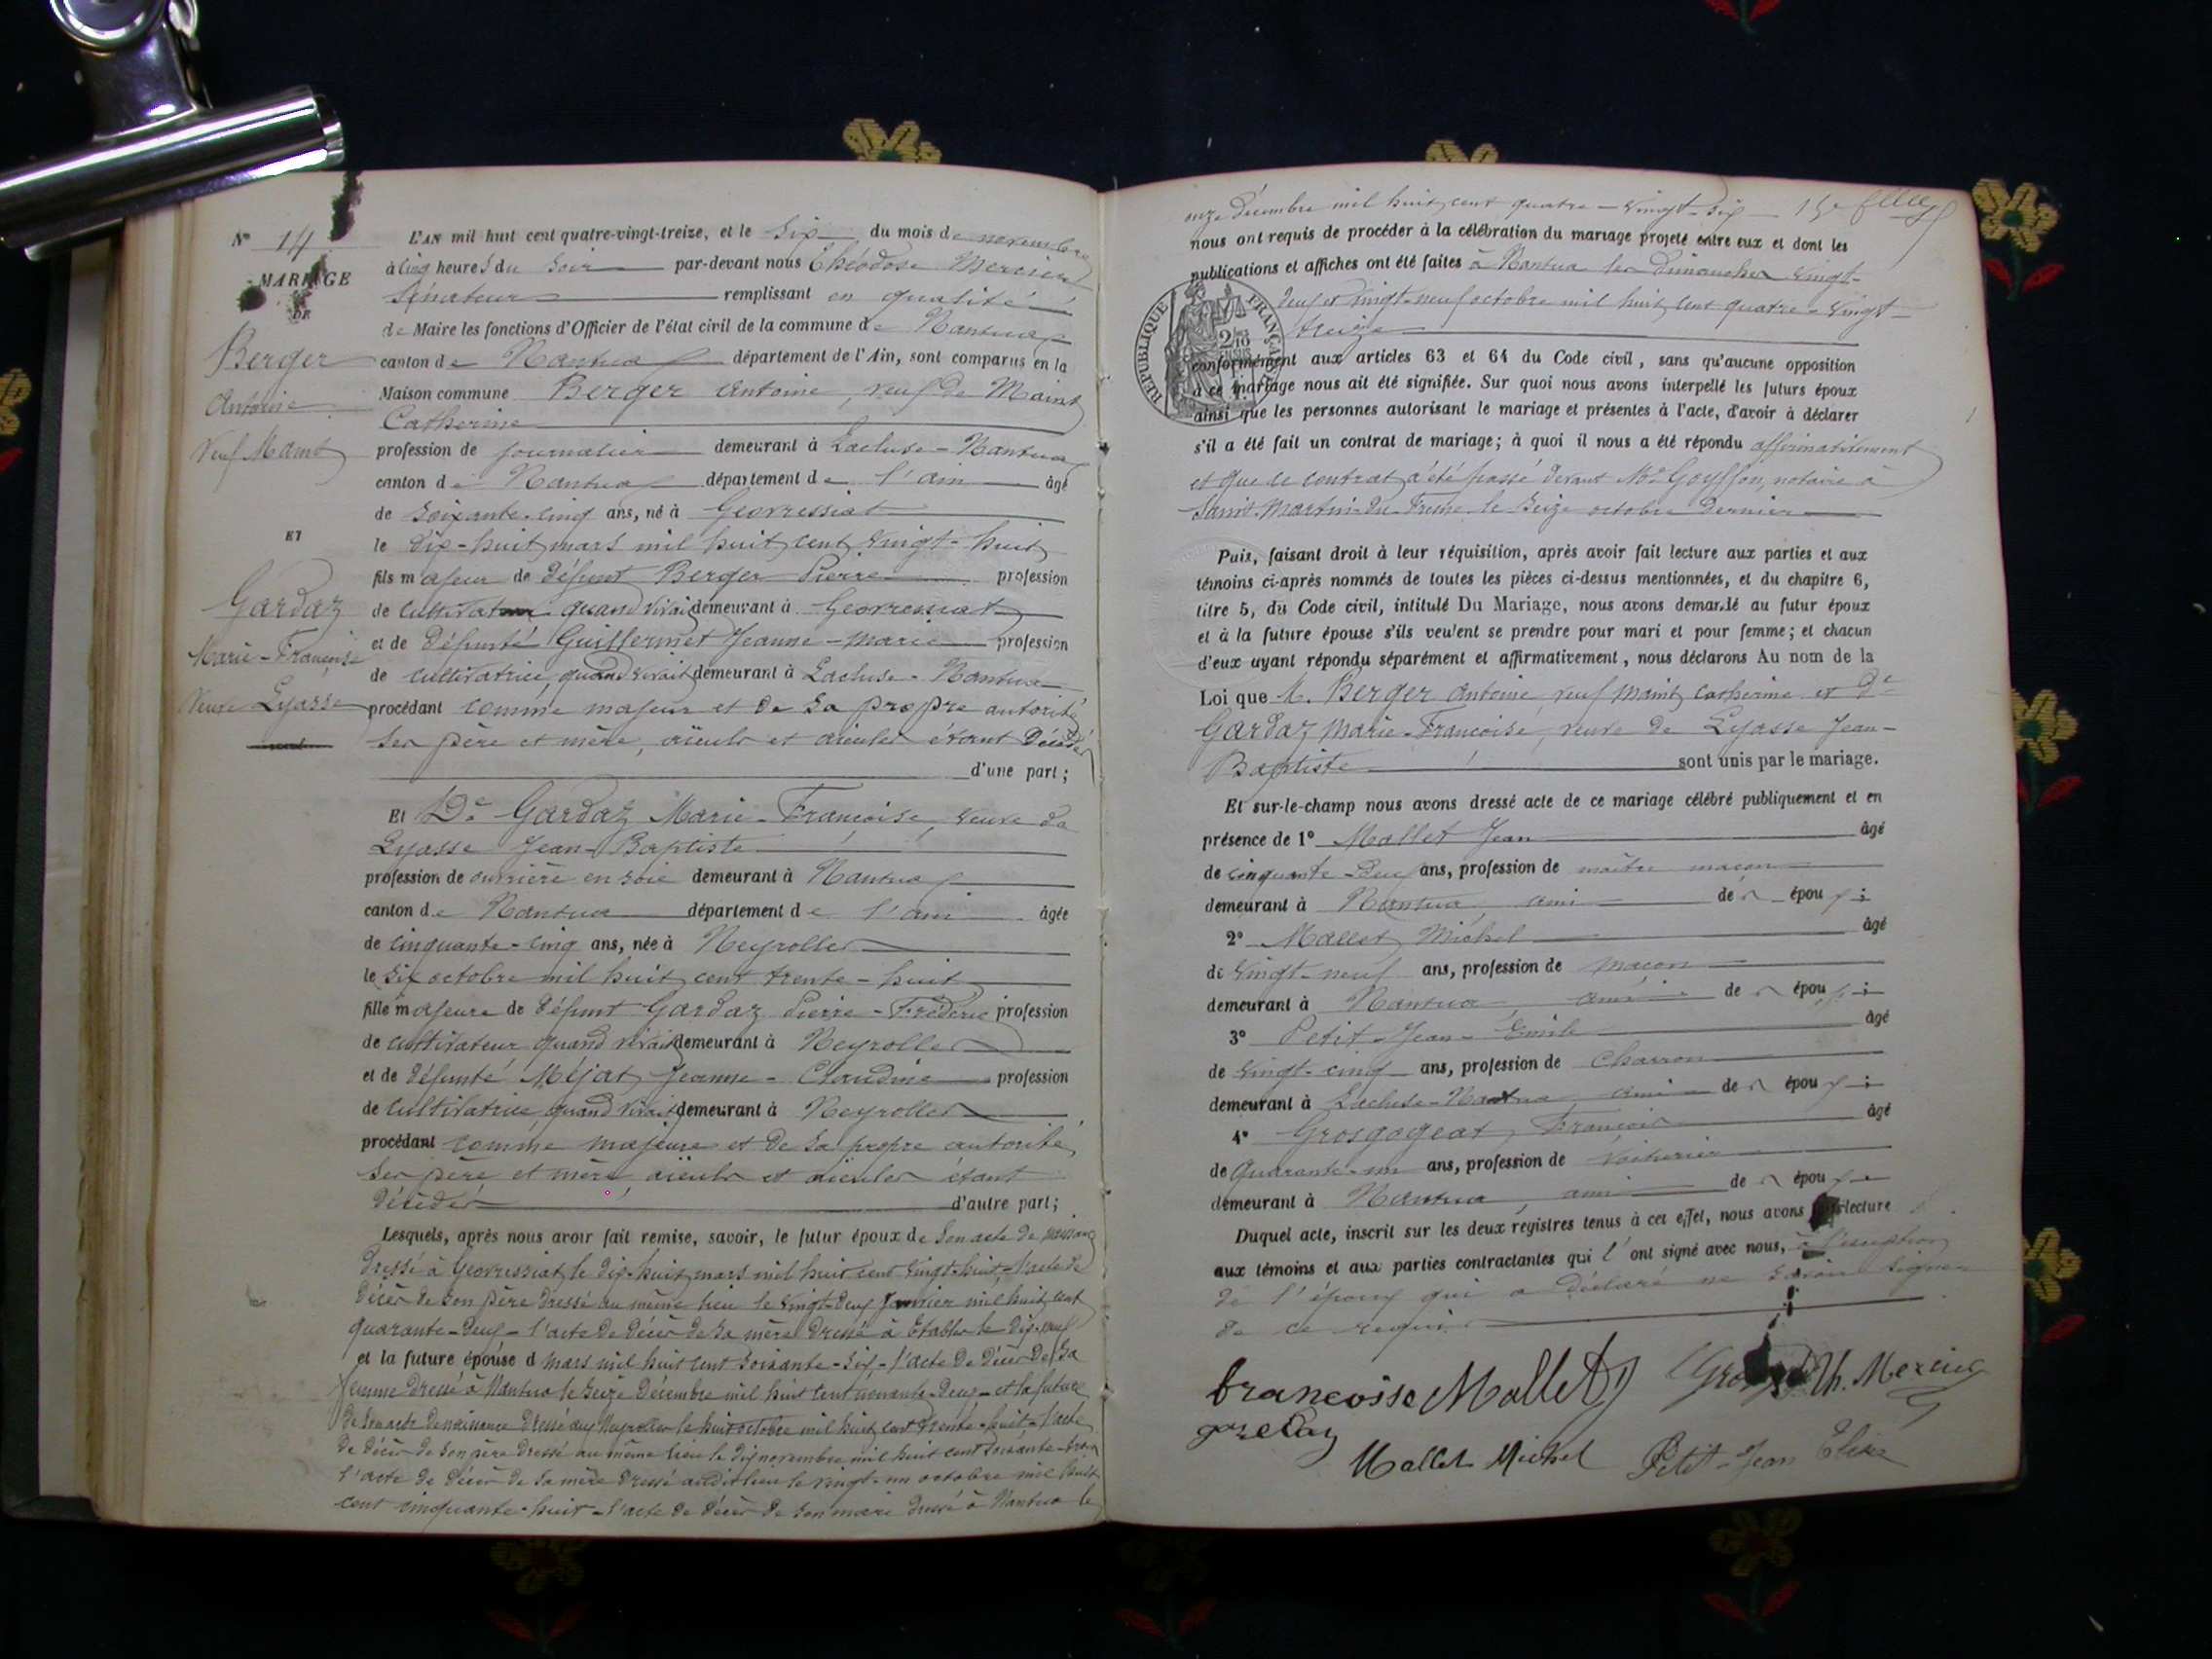 N° 14
MARIAGE
DE
Berger
Antoine
Veuf Maint
ET
Gardaz
Marie-Françoise
Veuve Lyasse
L'AN mil huit cent quatre-vingt-treize, et le six du mois de novembre
à cinq heures du soir par-devant nous Théodose Mercier
Sénateur remplissant en qualité
de Maire les fonctions d'Officier de l'état civil de la commune de Nantua
canton de Nantua département de l'Ain, sont comparus en la
Maison commune Berger Antoine, veuf de Maint
Catherine
profession de journalier demeurant à Lacluse-Nantua
canton de Nantua département de l'ain âgé
de soixante-cinq ans, né à Geovressiat
le dix-huit mars mil huit cent vingt-huit
fils majeur de défunt Berger Pierre profession
de cultivateur quand vivait demeurant à Geovressiat
et de défunte Guillermet Jeanne-Marie profession
de cultivatrice, quand vivait demeurant à Lacluse-Nantua
procédant comme majeur et de sa propre autorité
ses père et mère, aïeuls et aïeules étant décédés
d'une part;
Et De Gardaz Marie-Françoise, veuve de
Lyasse Jean-Baptiste
profession de ouvrière en soie demeurant à Nantua
canton de Nantua département de l'ain âgée
de cinquante-cinq ans, née à Neyrolles
le six octobre mil huit cent trente-huit
fille majeure de défunt Gardaz Pierre-Frédéric profession
de cultivateur quand vivait demeurant à Neyrolles
et de défunte Méjat Jeanne-Claudine profession
de cultivatrice, quand vivait demeurant à Neyrolles
procédant comme majeure et de sa propre autorité,
ses père et mère, aïeuls et aïeules étant
décédés d'autre part;
Lesquels, après nous avoir fait remise, savoir, le futur époux de son acte de naissance
dressé à Geovressiat le dix-huit mars mil huit cent vingt-huit, l'acte de
décès de son père dressé au même lieu le vingt-deux janvier mil huit cent
quarante-deux - l'acte de décès de sa mère dressé à Etables le dix-neuf
et la future épouse d mars mil huit cent soixante-six - l'acte de décès de sa
femme dressé à Nantua le seize décembre mil huit cent nonante-deux - et la future
de son acte de naissance dressé aux Neyrolles le huit octobre mil huit cent trente-huit - l'acte
de décès de son père dressé au même lieu le dix novembre mil huit cent soixante-trois
l'acte de décès de sa mère dressé audit lieu le vingt-un octobre mil huit
cent cinquante-huit - l'acte de décès de son mari dressé à Nantua le
onze décembre mil huit cent quatre-vingt-six
nous ont requis de procéder à la célébration du mariage projeté entre eux et dont les
publications et affiches ont été faites à Nantua les dimanches vingt-
deux et vingt-neuf octobre mil huit cent quatre-vingt-
treize
RÉPUBLIQUE FRANÇAISE
conformément aux articles 63 et 64 du Code civil, sans qu'aucune opposition
à ce mariage nous ait été signifiée. Sur quoi nous avons interpellé les futurs époux
ainsi que les personnes autorisant le mariage et présentes à l'acte, d'avoir à déclarer
s'il a été fait un contrat de mariage; à quoi il nous a été répondu affirmativement
et que ce contrat a été passé devant Me Goyffon, notaire à
Saint-Martin-du-Fresne le seize octobre dernier
Puis, faisant droit à leur réquisition, après avoir fait lecture aux parties et aux
témoins ci-après nommés de toutes les pièces ci-dessus mentionnées, et du chapitre 6,
titre 5, du Code civil, intitulé Du Mariage, nous avons demandé au futur époux
et à la future épouse s'ils veulent se prendre pour mari et pour femme; et chacun
d'eux ayant répondu séparément et affirmativement, nous déclarons Au nom de la
Loi que M. Berger Antoine, veuf Maint Catherine et De
Gardaz Marie-Françoise, veuve de Lyasse Jean-
Baptiste sont unis par le mariage.
Et sur-le-champ nous avons dressé acte de ce mariage célébré publiquement et en
présence de 1° Mallet Jean âgé
de cinquante-deux ans, profession de maître maçon
demeurant à Nantua, ami de épou ;
2° Mallet Michel âgé
de vingt-neuf ans, profession de maçon
demeurant à Nantua, ami de épou ;
3° Petit-Jean Emile âgé
de vingt-cinq ans, profession de charron
demeurant à Lacluse-Nantua, ami de épou ;
4° Grosgogeat, François âgé
de quarante-un ans, profession de voiturier
demeurant à Nantua, ami de épou
Duquel acte, inscrit sur les deux régistres tenus à cet effet, nous avons lecture
aux témoins et aux parties contractantes qui l'ont signé avec nous, à l'exception
de l'époux qui a déclaré ne savoir signer
de ce requis
francoise Mallet Th. Mercier
Mallet Michel Petit-Jean